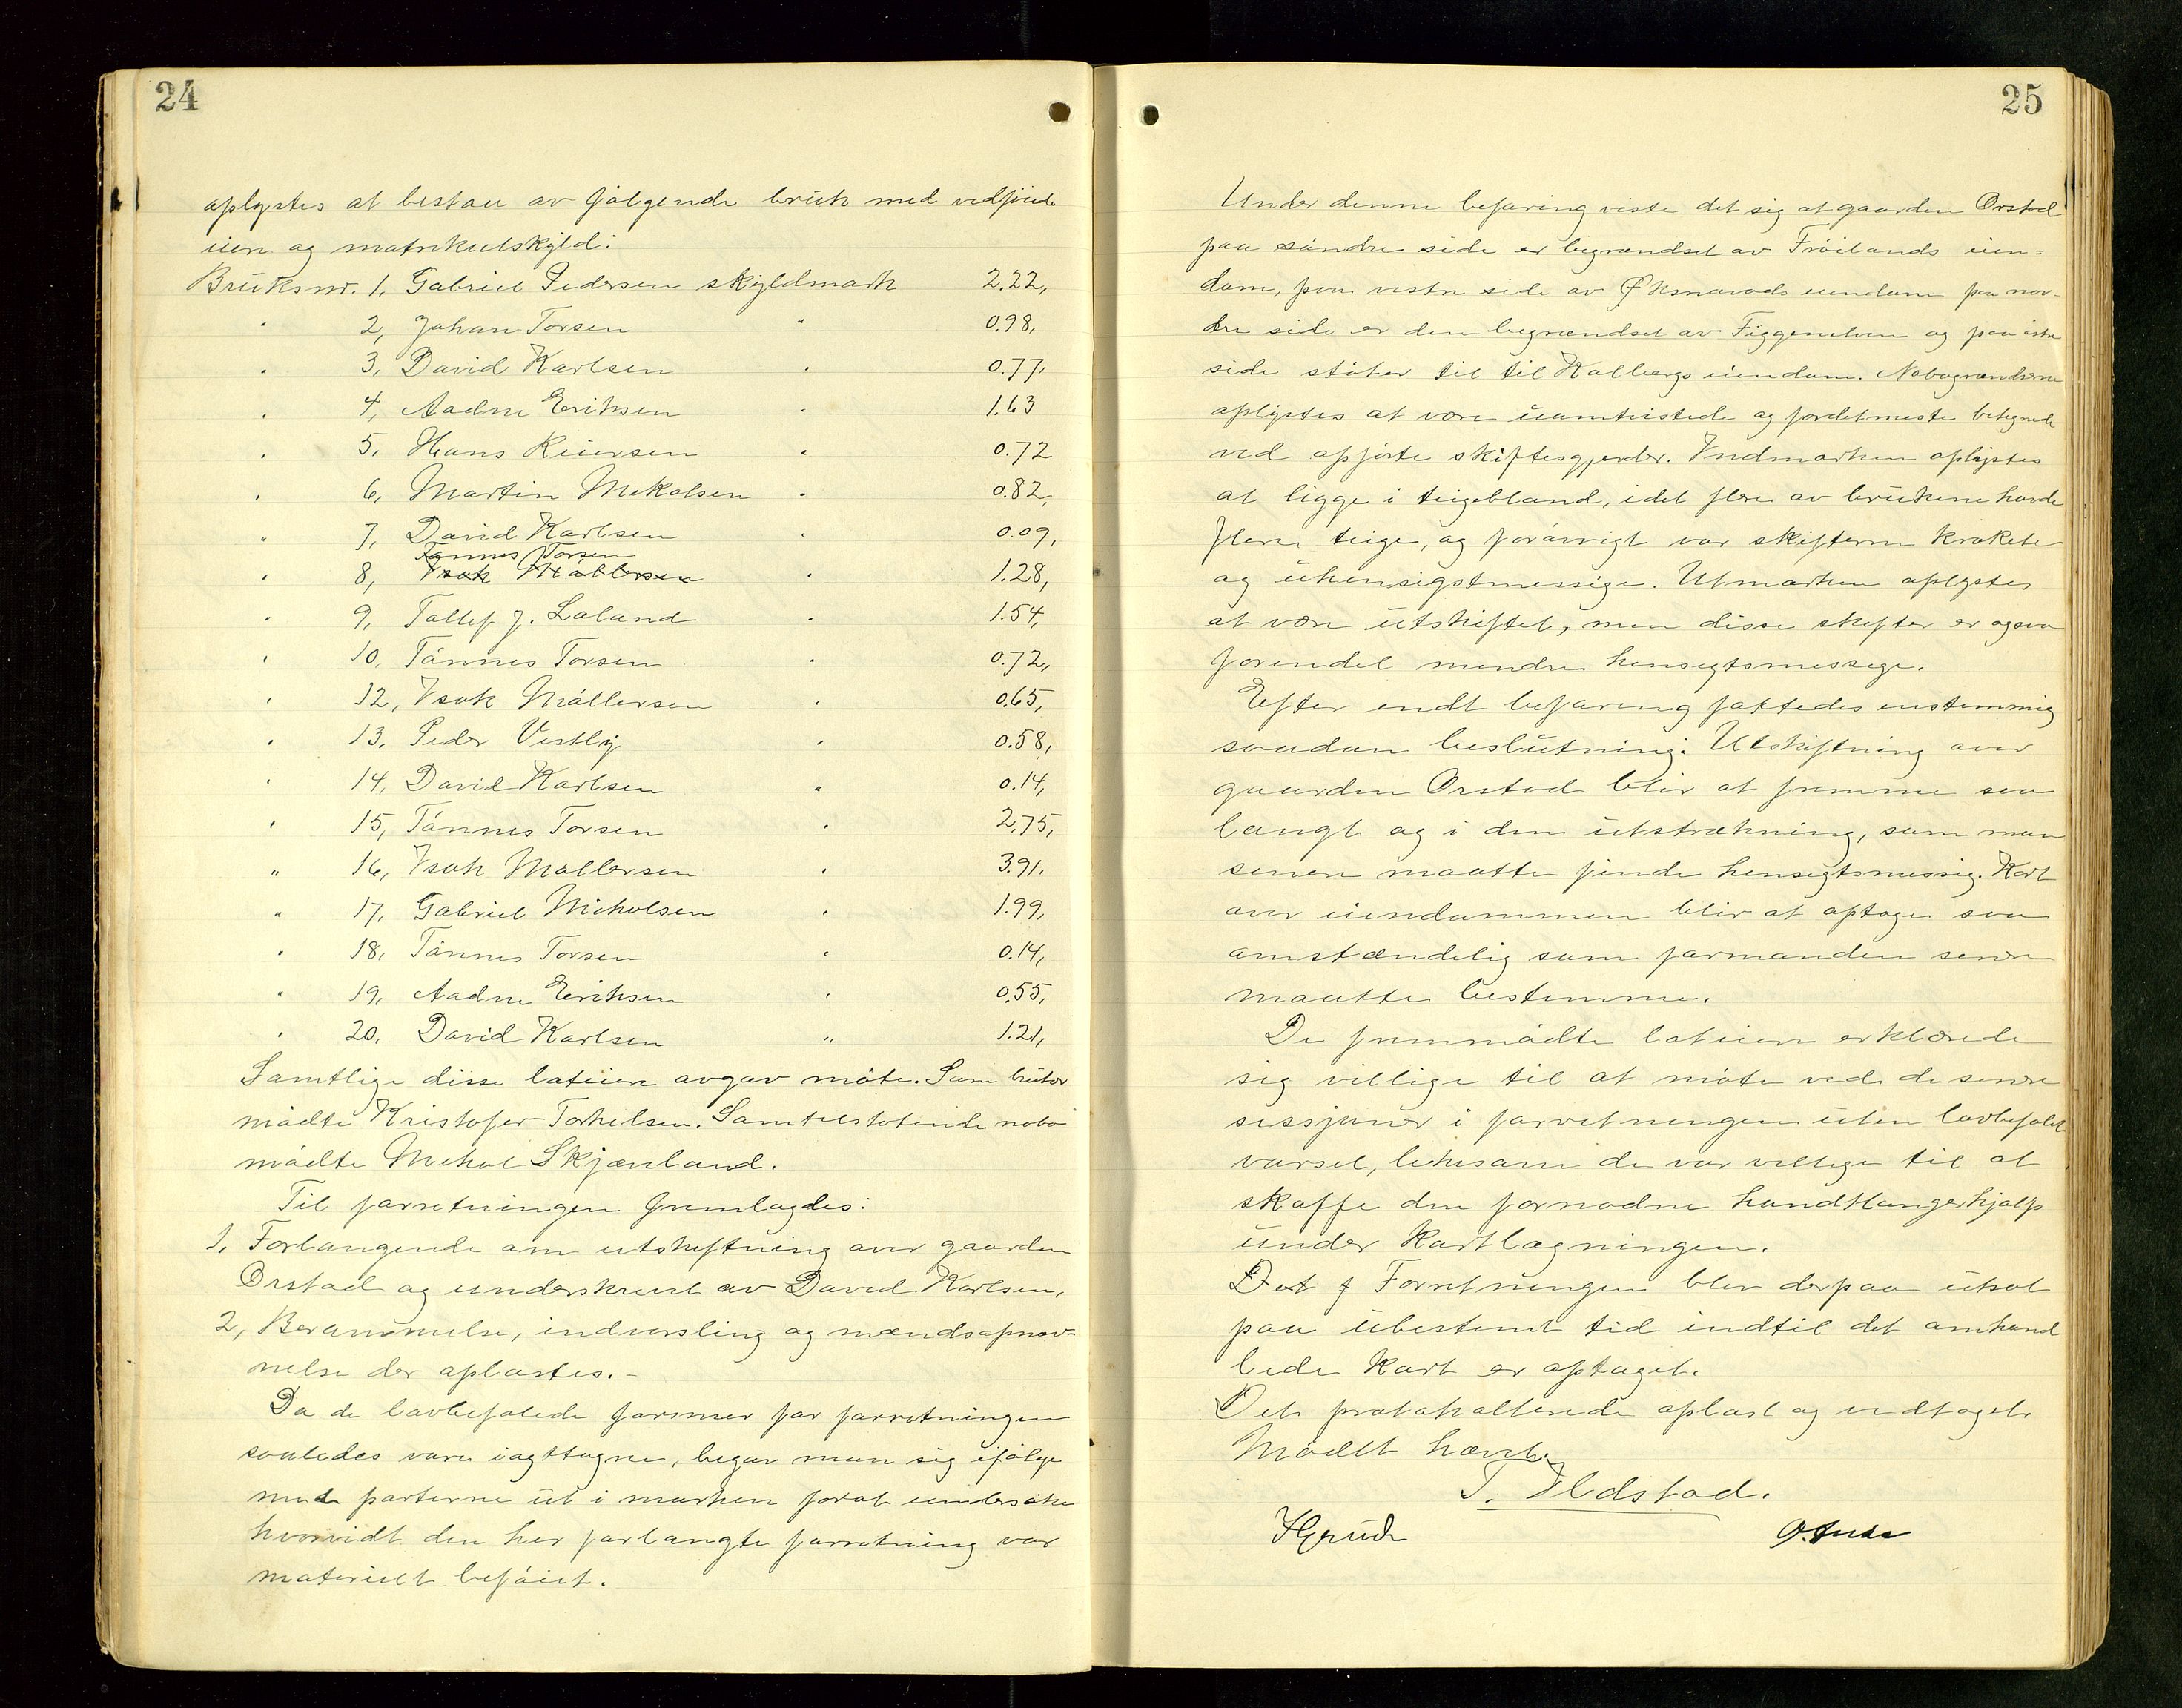 24
oplystes at bestaa av følgende bruk med vedføiede
eiere og matrikulskyld:
Bruksnr. 1, Gabriel Pedersen skyldmark 2.22,
" 2, Johan Torsen " 0.98,
" 3, David Karlsen " 0.77,
" 4, Aadne Eriksen " 1.63
" 5, Hans Reiersen " 0.72
" 6, Martin Mikalsen " 0.82,
" 7, David Karlsen " 0.09,
Tønnes Torsen
" 8, Isak Møllersen " 1.28,
" 9, Tollef J. Laland " 1.54,
" 10, Tønnes Torsen " 0.72,
" 12, Isak Møllersen " 0.65,
" 13, Peder Vestly " 0.58,
" 14, David Karlsen " 0.14,
" 15, Tønnes Torsen " 2.75,
" 16, Isak Møllersen " 3.91,
" 17, Gabriel Nicholsen " 1.99,
" 18, Tønnes Torsen " 0.14,
" 19, Aadne Eriksen " 0.55,
" 20, David Karlsen " 1.21,
Samtlige disse lateiere avgav møte. Som bruker
mødte Kristofer Torkelsen. Som tilstøtende nabo
mødte Mikal Skjæveland.
Til forretningen fremlagdes:
1, Forlangende om utskiftning over gaarden
Orstad og underskrevet av David Karlsen,
2, Berammelse, indvarsling og mændsopnæv-
nelse der oplæstes.-
Da de lovbefalede former for forretningen
saaledes vare iagttagne, begav man sig ifølge
med parterne ut i marken forat undersøke
hvorvidt den her forlangte forretning var
materielt beføiet.
25
Under denne befaring viste det sig at gaarden Orstad
paa søndre side er begrændset av Frøilands eien=
dom, paa vestre side av Øksnavads eiendom paa nor-
dre side er den begrændset av Figgenelven og paa østre
side støter til til Kalbergs eiendom. Nabogrændserne
oplystes at være uomtvistede og fordetmeste betegnede
ved opførte skiftesgjerder. Indmarken oplystes
at ligge i teigebland, idet flere av brukene havde
flere teige, og forøvrigt var skifterne krokete
og uhensigtmessige. Utmarken oplystes
at være utskiftet, men disse skifter er ogsaa
forendel mindre hensigtsmessige.
Efter endt befaring fattedes enstemmig
saadan beslutning: Utskiftning over
gaarden Orstad blir at fremme saa
langt og i den utstrækning, som man
senere maatte finde hensigtsmessig. Kart
over eiendommen blir at optage saa
omstændelig som formanden senere
maatte bestemme.
De fremmødte lateiere erklærede
sig villige til at møte ved de senere
sessjoner i forretningen uten lovbefalet
varsel, likesom de var villige til at
skaffe den fornødne handtlangerhjælp
under kartlægningen.
Det f Forretningen blev derpaa utsat
paa ubestemt tid indtil det omhand
lede kart er optaget.
Det protokollerede oplæst og vedtaget.
Mødet hævet.
T. Ildstad.